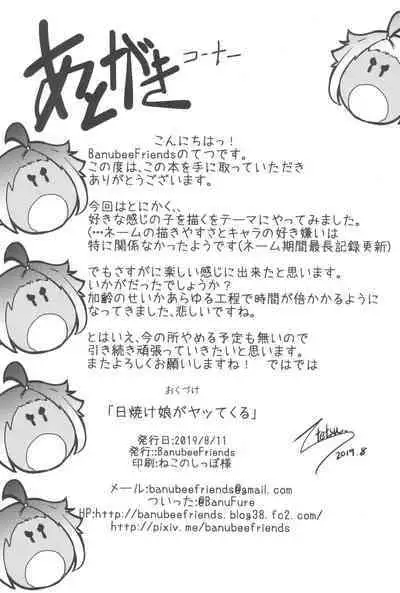 あとがき
コーナー
こんにちはっ!
BanubeeFriendsのてつです。
この度は、この本を手に取っていただき
ありがとうございます。
今回はとにかく、、
好きな感じの子を描くをテーマにやってみました。
(…ネームの描きやすさとキャラの好き嫌いは
特に関係なかったようです(ネーム期間最長記録更新)
でもさすがに楽しい感じに出来たと思います。
いかがだったでしょうか?
加齢のせいかあらゆる工程で時間が倍かかるように
なってきました、悲しいですね。
とはいえ、今の所やめる予定も無いので
引き続き頑張っていきたいと思います。
またよろしくお願いしますね! ではでは
おくづけ
「日焼け娘がヤッてくる」
発行日:2019/8/11
発行::BanubeeFriends
印刷:ねこのしっぽ様
Tetsu
2019.8
メール:banubeefriends@gmail.com
ついった:@BanuFure
HP:http://banubeefriends.blog38.fc2.com/
http://pixiv.me/banubeefriends